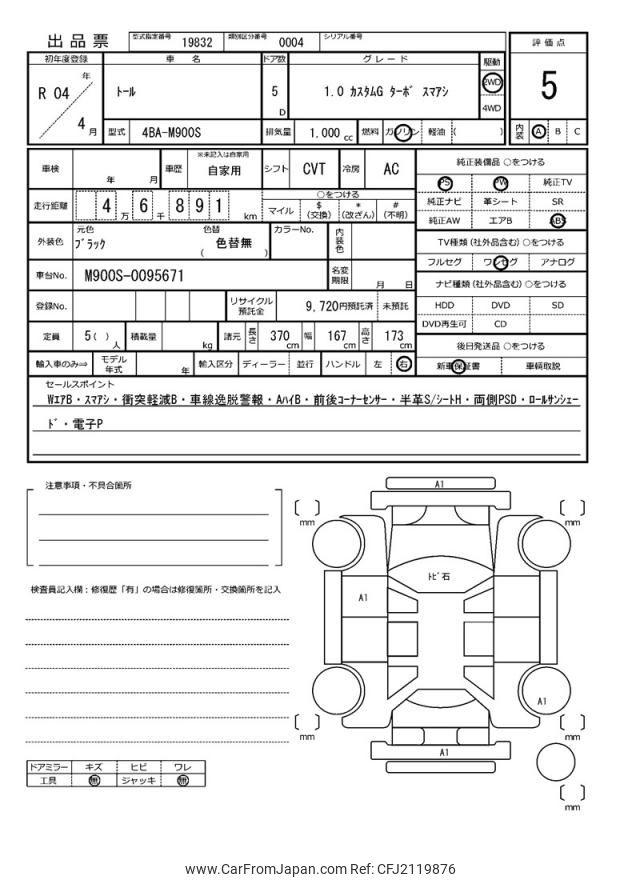 出品票 型式指定番号 19832 類別区分番号 0004 シリアル番号
評価点
5
内装 A B C
初年度登録 車名 ドア数 グレード 駆動
R 04 年 4 月
トール
5 D
1.0 カスタムG ターボ スマアシ
2WD
4WD
型式 4BA-M900S 排気量 1.000 cc 燃料 ガソリン 軽油 ( )
車検 年 月 車歴 ※未記入は自家用 自家用 シフト CVT 冷房 AC
走行距離 4 万 6 千 8 9 1 km
○をつける
マイル $ (交換) * (改ざん) # (不明)
外装色 元色 ブラック 色替 ( 色替無 ) カラーNo. 内装色
車台No. M900S-0095671 名変期限 月 日
登録No. リサイクル預託金 9,720円預託済 未預託
定員 5( ) 人 積載量 kg 諸元 長さ 370 cm 幅 167 cm 高さ 173 cm
輸入車のみ⇒ モデル年式 年 輸入区分 ディーラー 並行 ハンドル 左 右
純正装備品 ○をつける
PS PW 純正TV
純正ナビ 革シート SR
純正AW エアB ABS
TV種類(社外品含む)○をつける
フルセグ ワンセグ アナログ
ナビ種類(社外品含む)○をつける
HDD DVD SD
DVD再生可 CD
後日発送品 ○をつける
新車保証書 車輌取説
セールスポイント
WエアB・スマアシ・衝突軽減B・車線逸脱警報・AハイB・前後コーナーセンサー・半革S/シートH・両側PSD・ロールサンシェー
ド・電子P
注意事項・不具合箇所
検査員記入欄:修復歴「有」の場合は修復箇所・交換箇所を記入
ドアミラー キズ ヒビ ワレ
工具 無 ジャッキ 無
A1
[ ] mm
[ ] mm
トビ石
A1
A1
[ ] mm
[ ] mm
A1
[ ] mm
www.CarFromJapan.com Ref: CFJ2119876